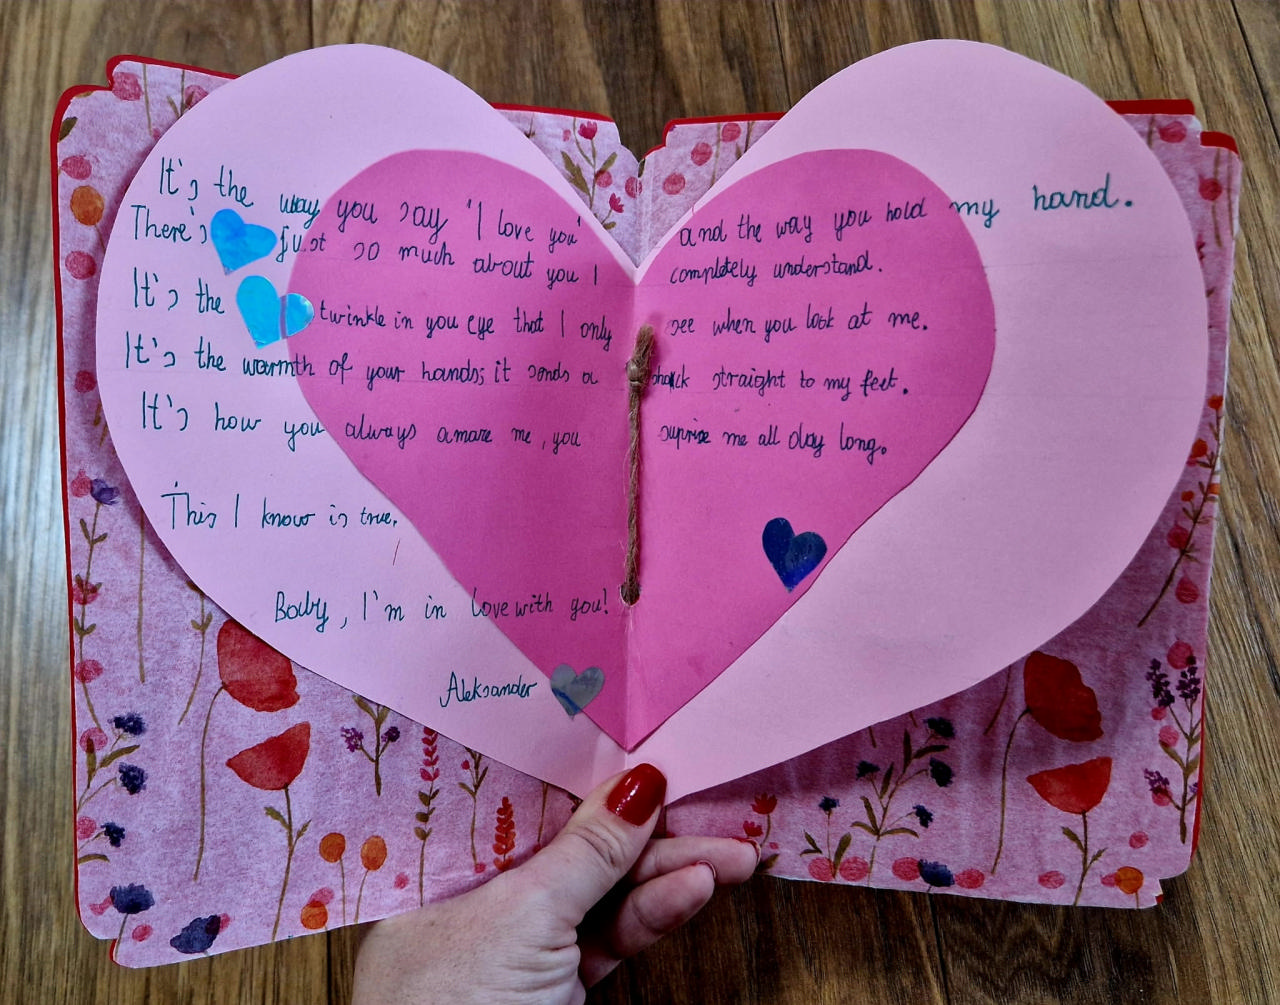 It's the way you say "I love you" and the way you hold my hand.
There's just so much about you I completely understand.
It's the twinkle in you eye that I only see when you look at me.
It's the warmth of your hands; it sends a shock straight to my feet.
It's how you always amaze me, you suprize me all day long.
This I know is true.
Baby, I'm in love with you!
Aleksander